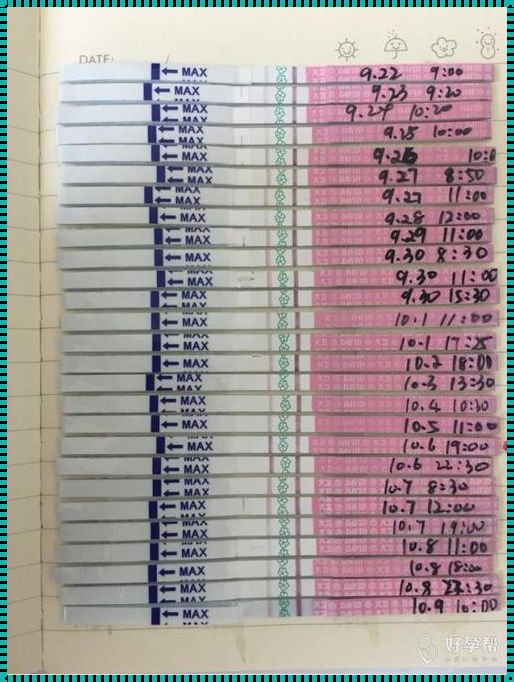 DATE: /
← MAX 9.22 9:00
← MAX 9.23 9:20
← MAX 9.24 10:20
← MAX 9.25 10:00
← MAX 9.26 10:0
← MAX 9.27 8:50
← MAX 9.27 11:00
← MAX 9.28 12:00
← MAX 9.29 11:00
← MAX 9.30 8:30
← MAX 9.30 11:00
← MAX 9.30 15:30
← MAX 10.1 11:00
← MAX 10.1 17:25
← MAX 10.2 18:00
← MAX 10.3 13:30
← MAX 10.4 10:30
← MAX 10.5 11:00
← MAX 10.6 19:00
← MAX 10.6 22:30
← MAX 10.7 8:30
← MAX 10.7 12:00
← MAX 10.7 19:00
← MAX 10.8 11:00
← MAX 10.8 18:00
← MAX 10.8 23:30
← MAX 10.9 10:00
好孕帮